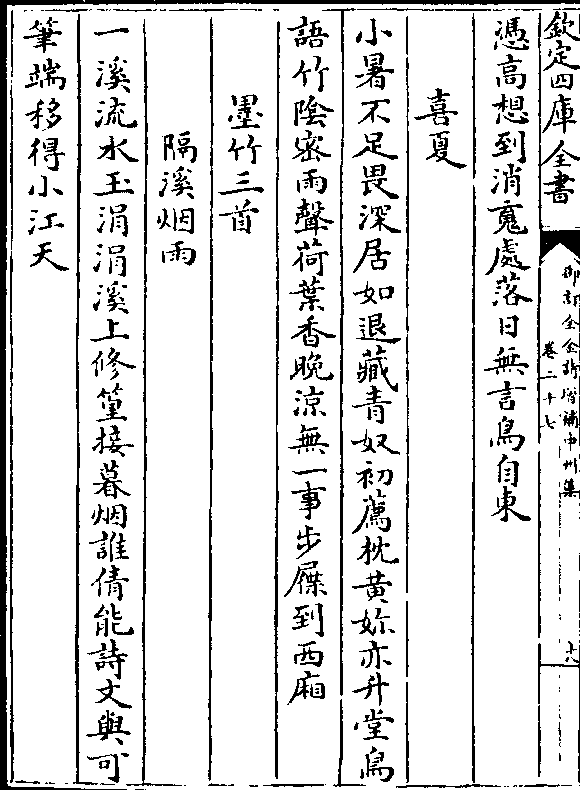 欽定四庫全書
御訂全金詩增補中州集
卷二十七
十八
憑高想到消䰟處落日無言鳥自東
喜夏
小暑不足畏深居如退藏青奴初薦枕黄妳亦升堂鳥
語竹陰宻雨聲荷葉香晚涼無一事步屧到西廂
墨竹三首
隔溪烟雨
一溪流水玉涓涓溪上修篁接暮烟誰倩能詩文與可
筆端移得小江天